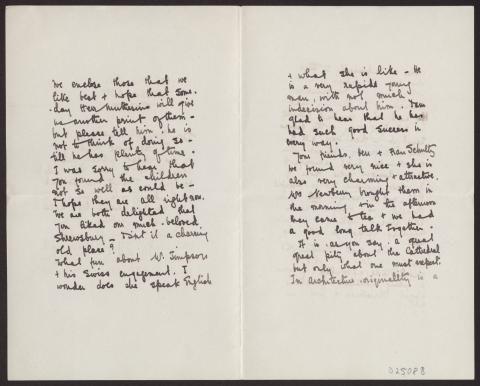 We enclose those that we
like best + hope that some-
day Herr Muthesius will give
us another print of them -
but please tell him he is
not to think of doing so -
till he has plenty of time.
I was sorry to hear that
you found the children
not so well as could be -
I hope they are all right now.
We are both delighted that
you liked our much-beloved
Shrewsbury - Isn't it a charming
old place?
What fun about Mr. Simpson
+ his Swiss engagement. I
wonder does she speak English
+ what she is like - He
is a very rapid young
man, with not much
indecision about him. I am
glad to hear that he has
had such good success in
every way.
Your friends. Herr + Frau Schultz
we found very nice + she is
also very charming + attractive.
Mr Newbery brought them in
the morning + in the afternoon
they came to tea + we had
a good long talk together.
It is as you say. a great
great pity about the Cathedral
but only what one must expect.
In Architecture. originality is a
025088